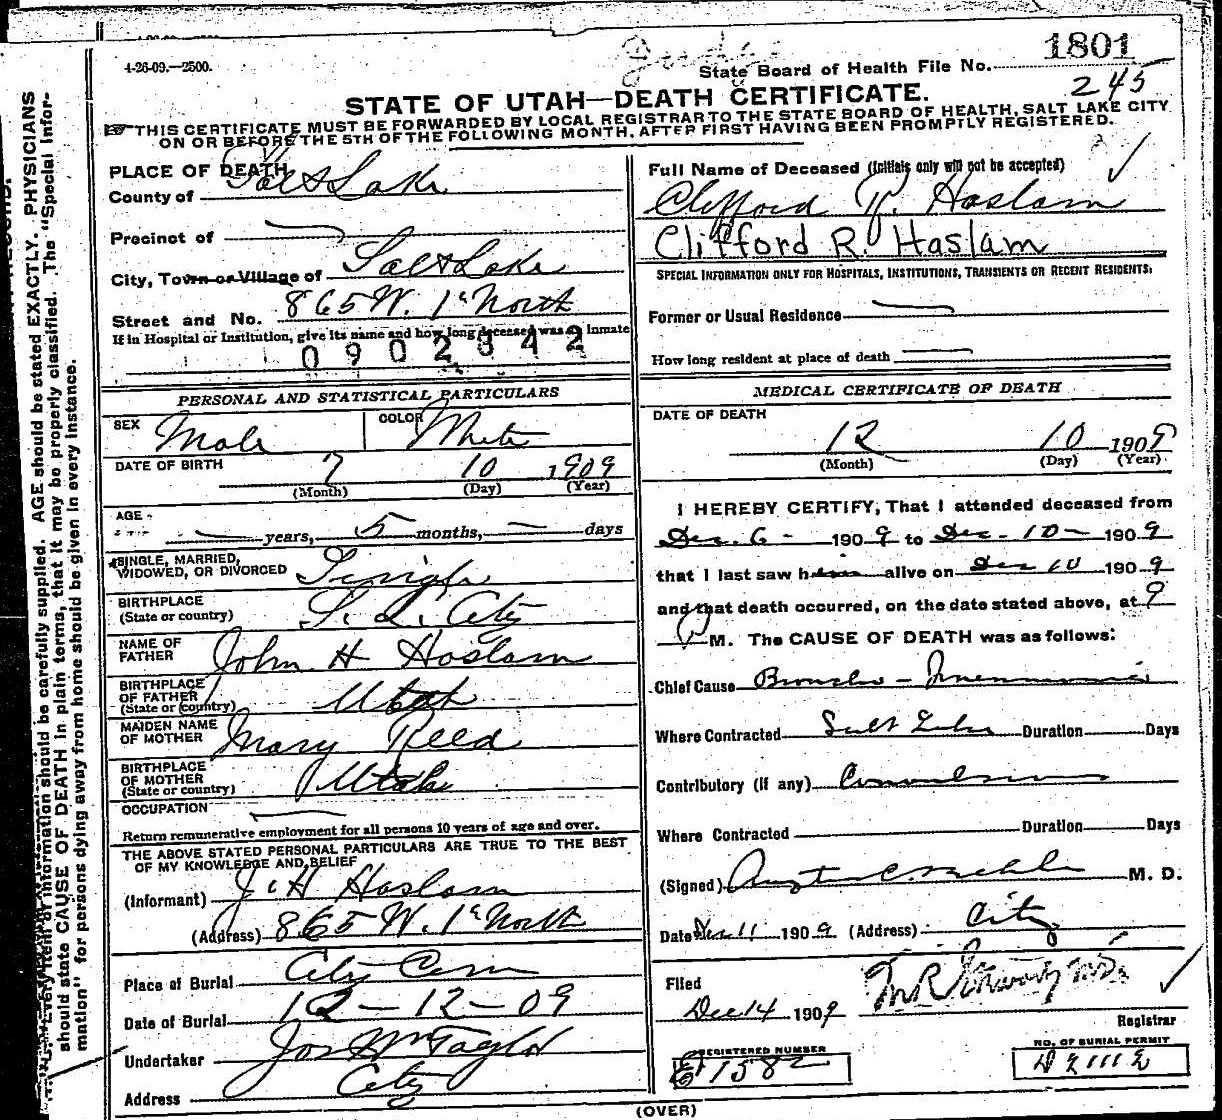 4-26-09.—2500.
State Board of Health File No. 1801
245
STATE OF UTAH—DEATH CERTIFICATE.
THIS CERTIFICATE MUST BE FORWARDED BY LOCAL REGISTRAR TO THE STATE BOARD OF HEALTH, SALT LAKE CITY
ON OR BEFORE THE 5TH OF THE FOLLOWING MONTH, AFTER FIRST HAVING BEEN PROMPTLY REGISTERED.
PLACE OF DEATH
County of Salt Lake
Precinct of —
City, Town or Village of Salt Lake
Street and No. 865 W. 1st North
If in Hospital or Institution, give its name and how long deceased was an inmate
0902342
PERSONAL AND STATISTICAL PARTICULARS
SEX Male COLOR White
DATE OF BIRTH 7 10 1909
(Month) (Day) (Year)
AGE
— years, 5 months, — days
SINGLE, MARRIED,
WIDOWED, OR DIVORCED Single
BIRTHPLACE
(State or country) S. L. City
NAME OF
FATHER John H Haslam
BIRTHPLACE
OF FATHER
(State or country) Utah
MAIDEN NAME
OF MOTHER Mary Reed
BIRTHPLACE
OF MOTHER
(State or country) Utah
OCCUPATION —
Return remunerative employment for all persons 10 years of age and over.
THE ABOVE STATED PERSONAL PARTICULARS ARE TRUE TO THE BEST
OF MY KNOWLEDGE AND BELIEF
(Informant) J. H Haslam
(Address) 865 W. 1st North
Place of Burial City Cem
Date of Burial 12-12-09
Undertaker Jos Wm Taylor
Address City
Full Name of Deceased (Initials only will not be accepted)
Clifford R. Haslam
Clifford R. Haslam
SPECIAL INFORMATION ONLY FOR HOSPITALS, INSTITUTIONS, TRANSIENTS OR RECENT RESIDENTS:
Former or Usual Residence —
How long resident at place of death —
MEDICAL CERTIFICATE OF DEATH
DATE OF DEATH
12 10 1909
(Month) (Day) (Year)
I HEREBY CERTIFY, That I attended deceased from
Dec. 6 - 1909 to Dec. 10 - 1909
that I last saw him alive on Dec 10 1909
and that death occurred, on the date stated above, at 9
P M. The CAUSE OF DEATH was as follows:
Chief Cause Broncho - Pneumonia
Where Contracted Salt Lake Duration Days
Contributory (if any) Convulsions
Where Contracted Duration Days
(Signed) M. D.
Date Dec 11 1909 (Address) City
Filed
Dec 14 1909
Registrar
REGISTERED NUMBER
1582
NO. OF BURIAL PERMIT
(OVER)
should state CAUSE OF DEATH in plain terms, that it may be properly classified. The "Special Infor-
mation" for persons dying away from home should be given in every instance.
every item of information should be carefully supplied. AGE should be stated EXACTLY. PHYSICIANS